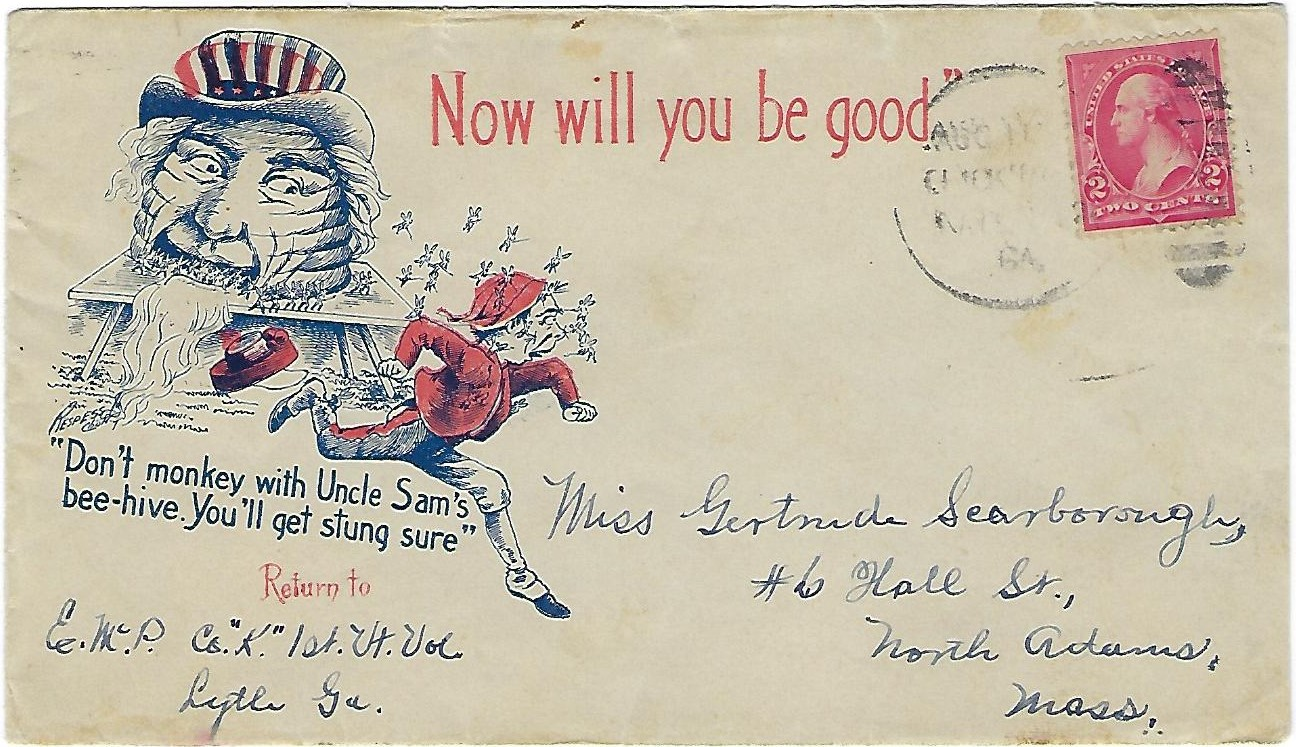 Now will you be good"
AUG
GA.
UNITED STATES
2 2
TWO CENTS
"Don't monkey with Uncle Sam's
bee-hive. You'll get stung sure"
Return to
E. Mc. P. Co. "K." 1st. Vt. Vol.
Lytle Ga.
Miss Gertrude Scarborough,
#6 Hall St.,
North Adams,
Mass.